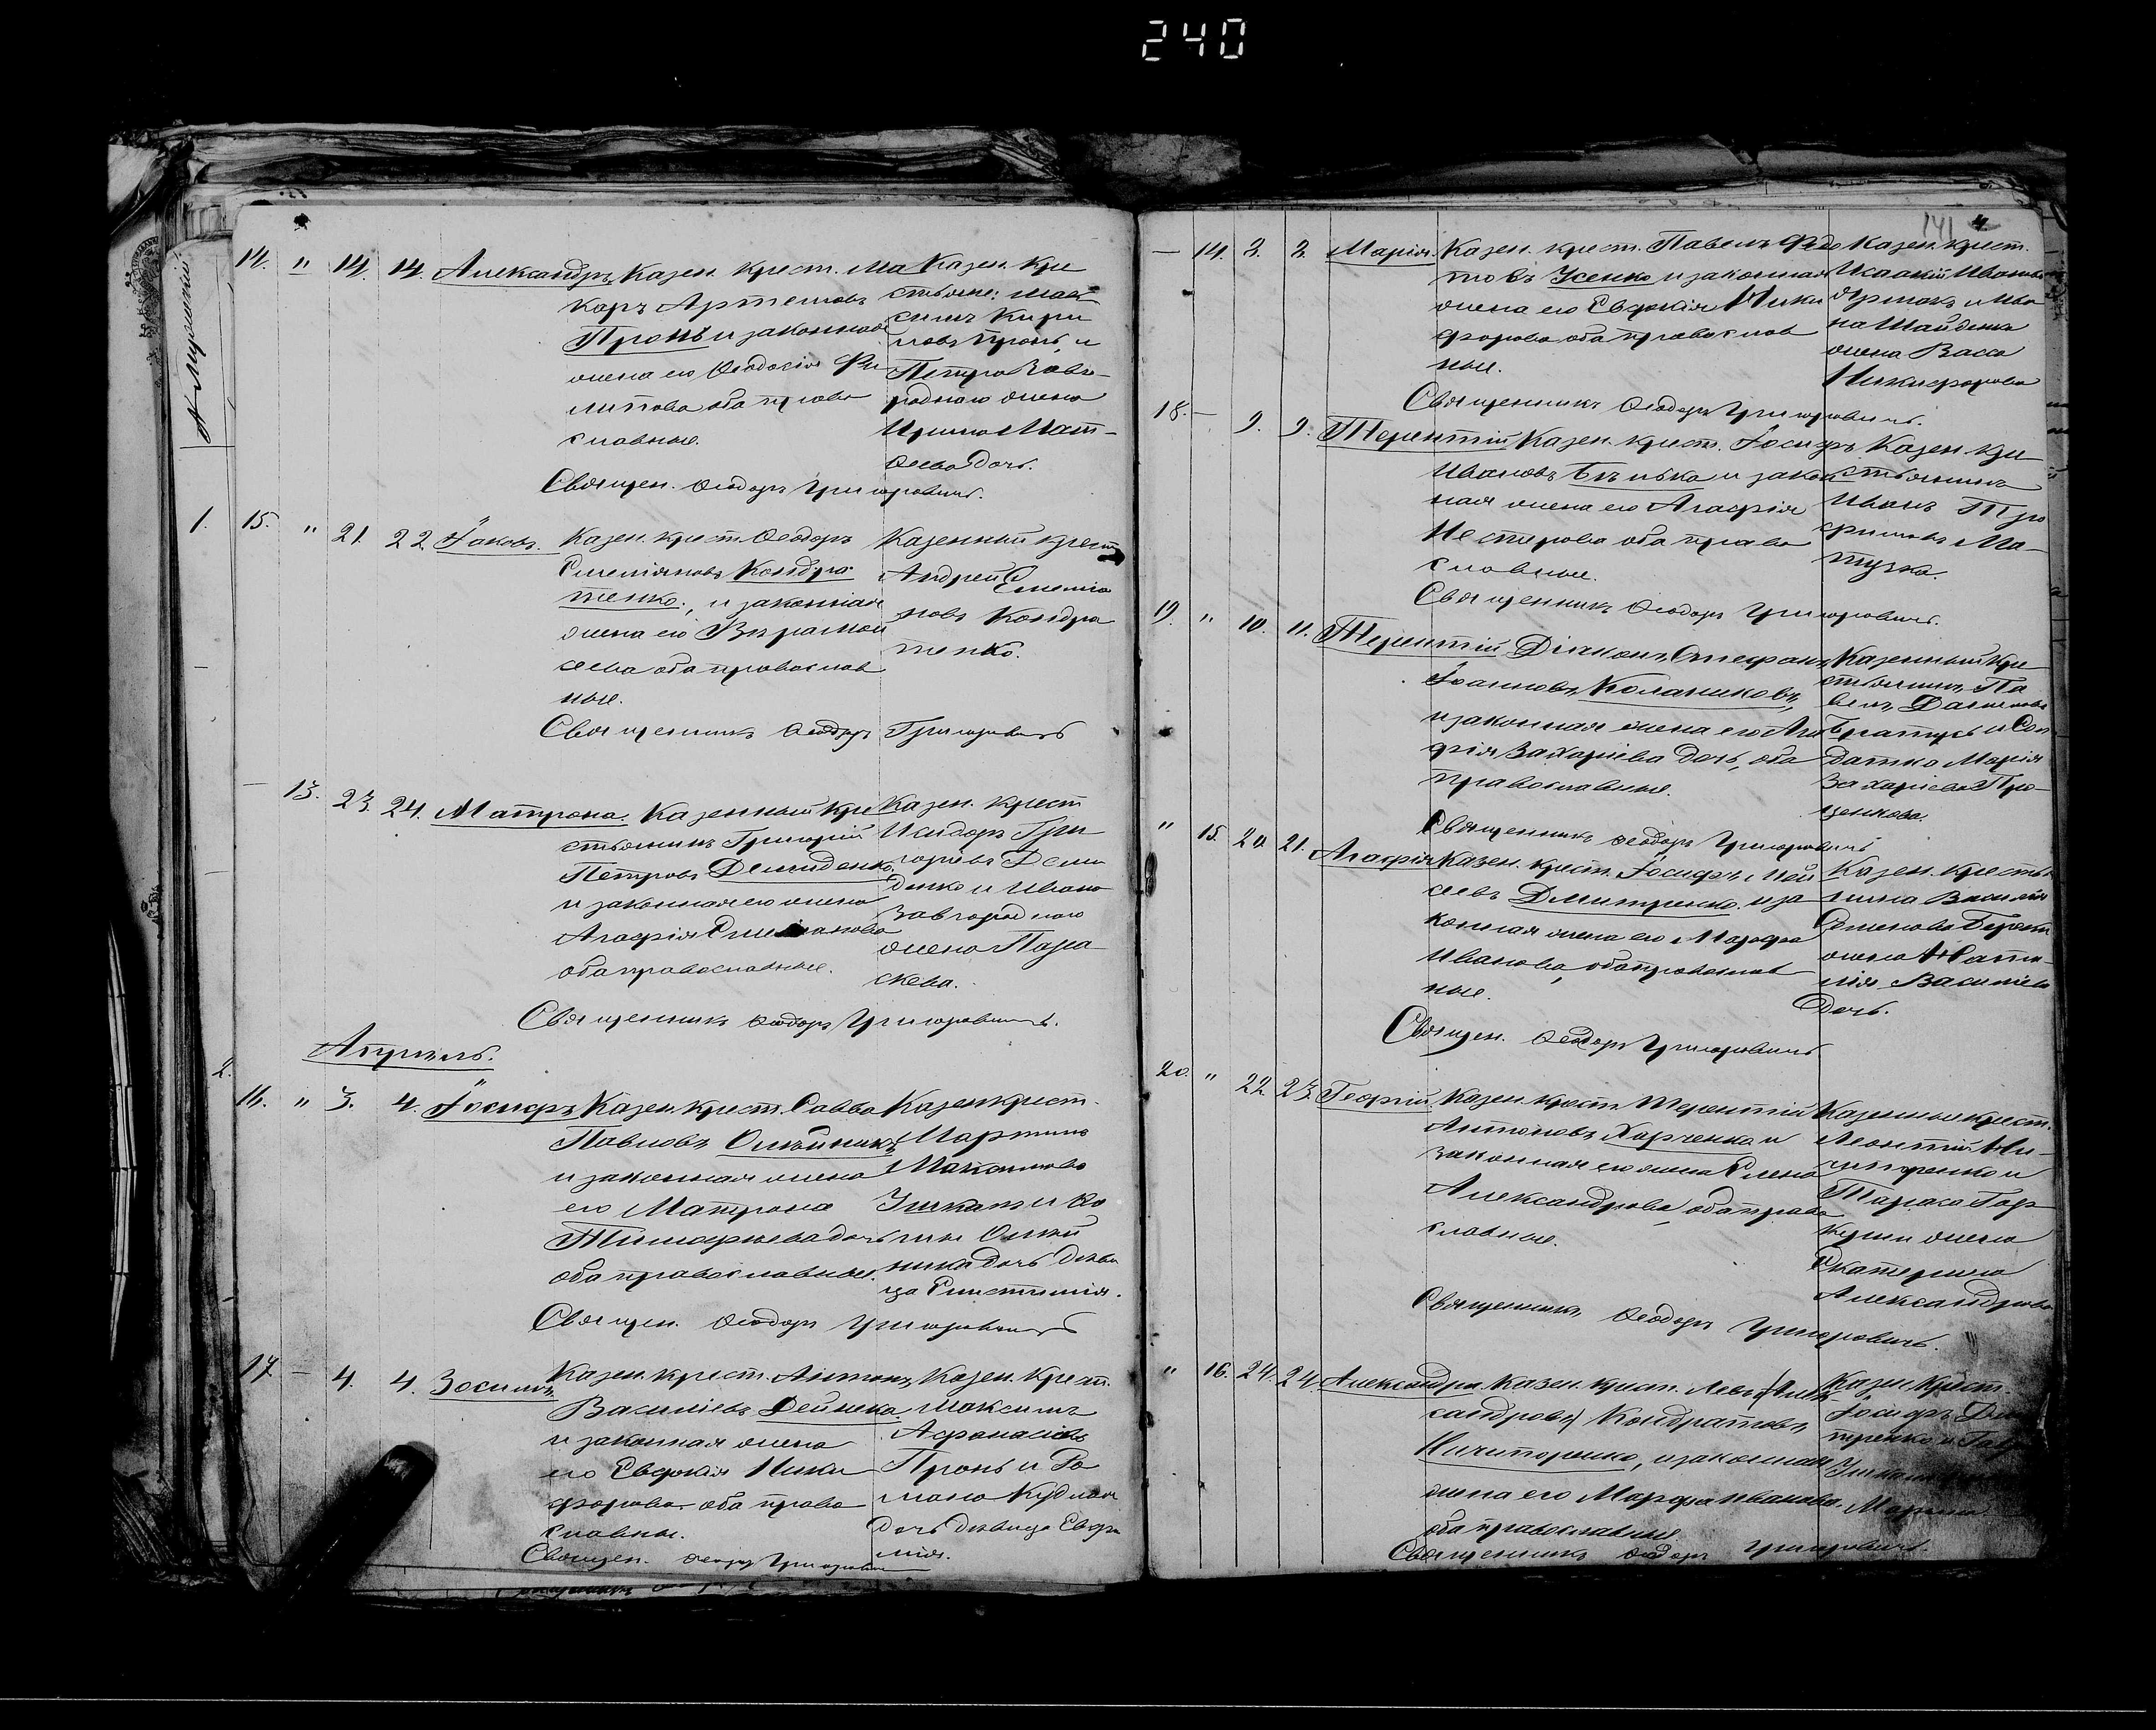 240
14. " 14. 14. Александръ Казен. крест. Ма
каръ Артемовъ
Пронь и законная
жена его Ѳеодосія Фи
липова оба право
славные.
Казен. кре
стьяне: Мак
симъ Кири
ловъ Пронь, и
Петра Заво-
роднаго жена
Ирина Мат-
ѳеева дочь.
Священ. Ѳеодоръ Григоровичъ.
1. 15. " 21. 22. Іаковъ. Казен. крест. Ѳеодоръ
Емеліяновъ Кондра
тенко, и законная
жена его Вѣра Мои
сеева оба православ
ные.
Казенный крест
Андрей Емелія
новъ Кондра
тенко.
Священникъ Ѳеодоръ Григоровичъ
— 13. 23. 24. Матрона. Казенный кре
стьянинъ Григорій
Петровъ Демиденко,
и законная его жена
Агафія Емеліанова
оба православные.
Казен. крест
Исидоръ Гри
горіевъ Деми
денко и Ивана
Завгороднаго
жена Пара
скева.
Священникъ Ѳеодоръ Григоровичъ.
Апрѣль.
2.
16. " 3. 4. Іосифъ Казен. крест. Савва
Павловъ Олѣйникъ,
и законная жена
его Матрона
Тимофеева дочь
оба православные.
Казен крест.
Мартинъ
Максимовъ
дочь дѣви
ца
Священ. Ѳеодоръ Григоровичъ
17 — 4. 4. Зосимъ. Казен. крест. Антонъ
Василіевъ Дейнека
и законная жена
его Евдокія Ники
форова оба право
славные.
Казен. крест.
Максимъ
Афанасіевъ
Пронь и Ро
мана
дочь дѣвица Евфи
мія.
Священ. Ѳеодоръ Григоровичъ
141
— 14. 2. 3. Марія. Казен. крест. Павелъ Федо
товъ Усенко и законная
жена его Евдокія Ники
форова оба православ
ные.
Казен. крест.
Исаакій Ивановъ
и Ива
на
жена Васса
Никифорова
Священникъ Ѳеодоръ Григоровичъ.
18. — 9. 9. Терентій Казен. крест. Іосифъ
Ивановъ и закон
ная жена его Агафія
Нестерова оба право
славные.
Казен. кре
стьянинъ
Иванъ Тро
фимовъ Ма-
Священникъ Ѳеодоръ Григоровичъ.
19. " 10. 11. Терентій Діаконъ Стефанъ
Іоанновъ Колачиковъ,
и законная жена его Ага
фія Захаріева дочь, оба
православные.
Казенный кре
стьянинъ Па
велъ
Братусь и Сол
датка Марія
Захаріева Про-
ценкова.
Священникъ Ѳеодоръ Григоровичъ
" 15. 20. 21. Агафія Казен. крест. Іосифъ Мой
сеевъ Дмитренко и за
конная жена его Марфа
Иванова, оба православ
ные.
Казен. крестья
нина Василія
Семенова
жена Ната-
лія Василіева
дочь.
Священ. Ѳеодоръ Григоровичъ
20. " 22. 23. Георгій. Казен. крест. Терентій
Антоновъ Харченко и
законная его жена Елена
Александрова, оба право
славные.
Казенные крест.
Леонтій Ни-
чипоренко и
Тараса Гар
куши жена
Екатерина
Александрова
Священникъ Ѳеодоръ Григоровичъ.
" 16. 24. 24. Александра. Казен. крест. Левъ (Алек
сандровъ) Кондратовъ
Ничипоренко, и законная
жена его Марфа Иванова
оба православные
Казен. крест.
Іосифъ Дми
тренко и
Марина
Священникъ Ѳеодоръ Григоровичъ.